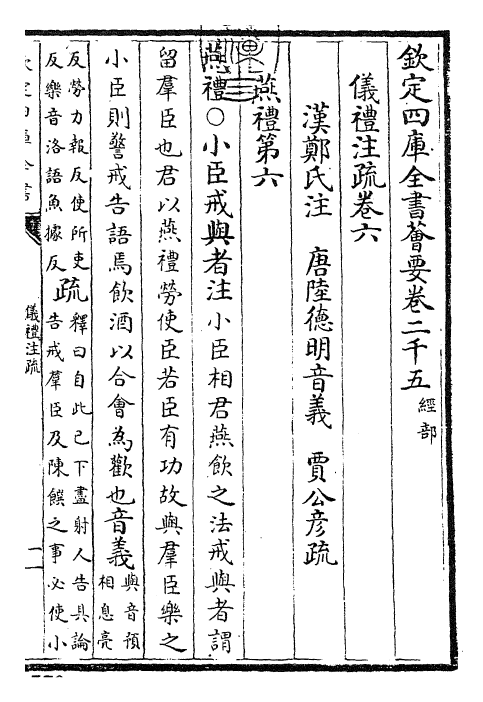 欽定四庫全書薈要卷二千五 經部
儀禮注疏卷六
漢鄭氏注 唐陸德明音義 賈公彥疏
燕禮第六
燕禮○小臣戒與者注小臣相君燕飲之法戒與者謂
留羣臣也君以燕禮勞使臣若臣有功故與羣臣樂之
小臣則警戒告語焉飲酒以合會為歡也音義與音預相息亮
反勞力報反使所吏反樂音洛語魚據反疏釋曰自此已下盡射人告具論告戒羣臣及陳饌之事必使小
儀禮注疏